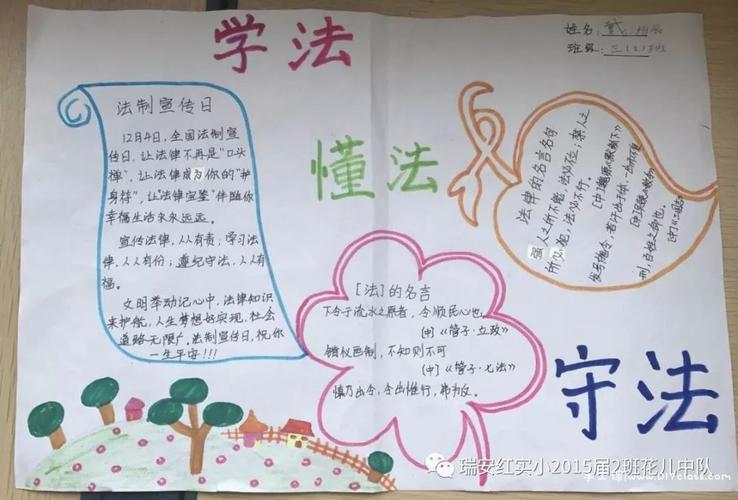 学法
姓名:戴
班级:三(2)班
法制宣传日
12月4日,全国法制宣
传日,让法律不再是“口头
禅”,让法律成为你的“护
身符”,让“法律宝鉴”伴随你
幸福生活永永远远。
宣传法律,人人有责;学习法
律,人人有份;遵纪守法,人人有
福。
文明举动记心中,法律知识
来护航,人生梦想好实现,社会
道路无限广。法制宣传日,祝你
一生平安!!!
懂法
法律的名言名句
强人之所不能,法必不立;禁人之
所必犯,法必不行。
发号施令,若汗出于体,一出而不复
刑,百姓之命也。
[法]的名言
下令于流水之原者,令顺民心也。
[中]《管子·立政》
错仪画制,不知则不可
[中]《管子·七法》
慎乃出令,令出惟行,弗为反。
守法
瑞安红实小2015届2班花儿中队
www.DIYclass.com